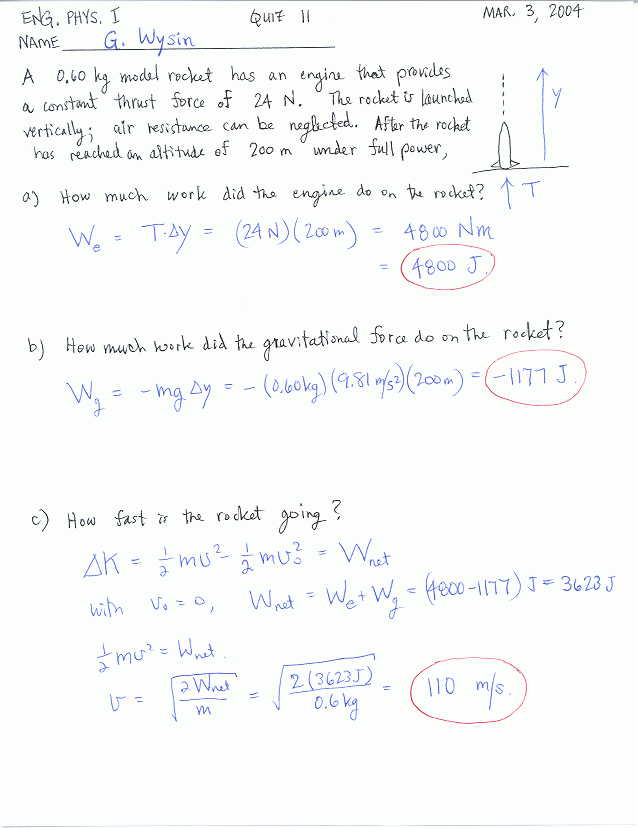 ENG. PHYS. I QUIZ 11 MAR. 3, 2004
NAME G. Wysin
A 0.60 kg model rocket has an engine that provides
a constant thrust force of 24 N. The rocket is launched
vertically; air resistance can be neglected. After the rocket
has reached an altitude of 200 m under full power,
y
T
a) How much work did the engine do on the rocket?
We = T·Δy = (24 N)(200 m) = 4800 Nm
= 4800 J.
b) How much work did the gravitational force do on the rocket?
Wg = -mg Δy = -(0.60kg)(9.81 m/s²)(200m) = -1177 J.
c) How fast is the rocket going?
ΔK = ½mv² - ½mv₀² = Wnet
with v₀ = 0, Wnet = We + Wg = (4800-1177) J = 3623 J
½mv² = Wnet.
v = √(2Wnet/m) = √(2(3623J)/0.6kg) = 110 m/s.